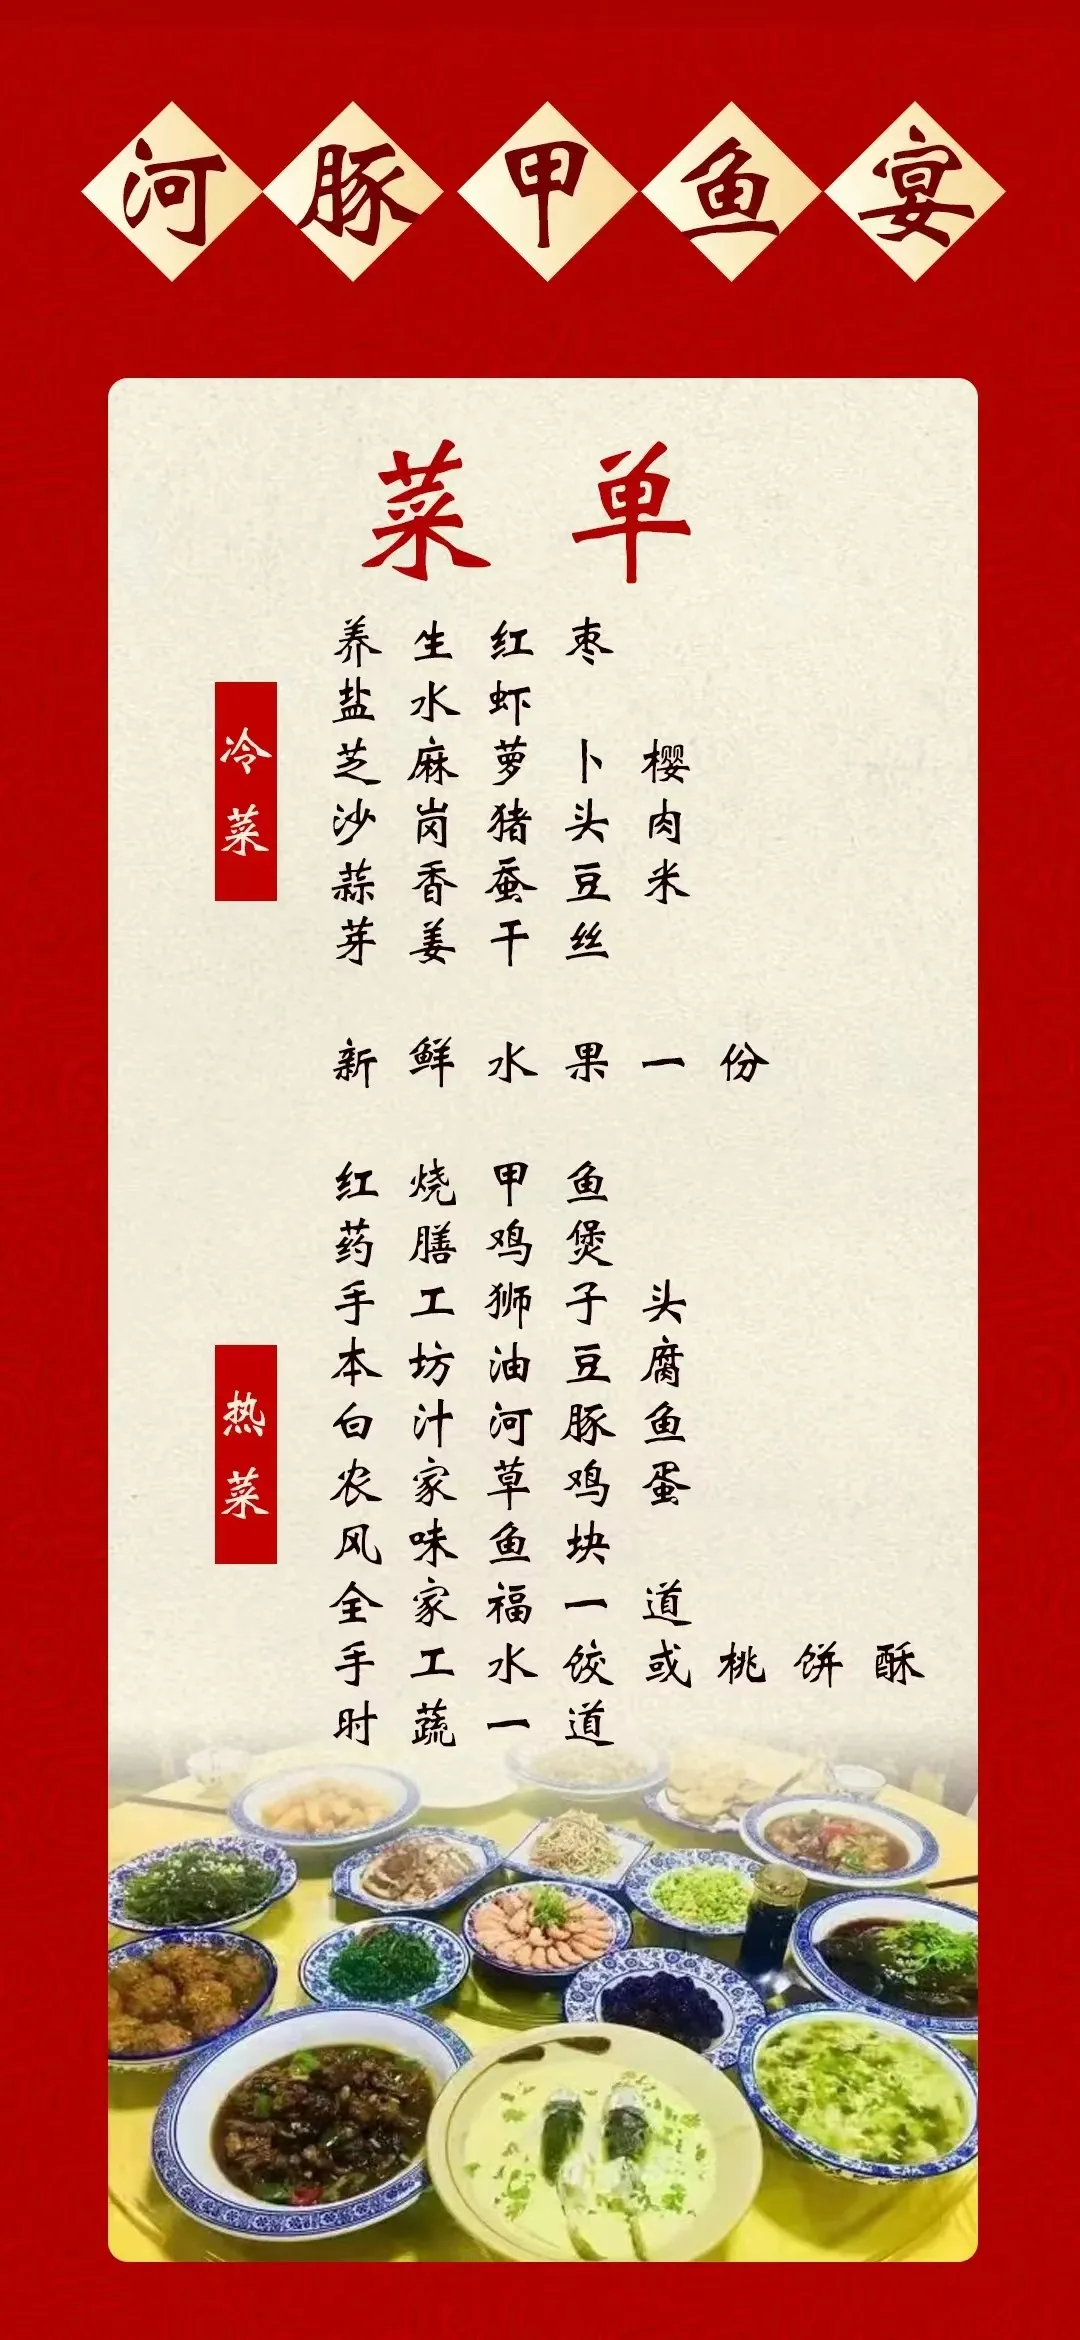 河豚甲鱼宴
菜单
冷菜
养生红枣
盐水虾
芝麻萝卜樱
沙岗猪头肉
蒜香蚕豆米
芽姜干丝
新鲜水果一份
热菜
红烧甲鱼
药膳鸡煲
手工狮子头
本坊油豆腐
白汁河豚鱼
农家草鸡蛋
风味鱼块
全家福一道
手工水饺或桃饼酥
时蔬一道